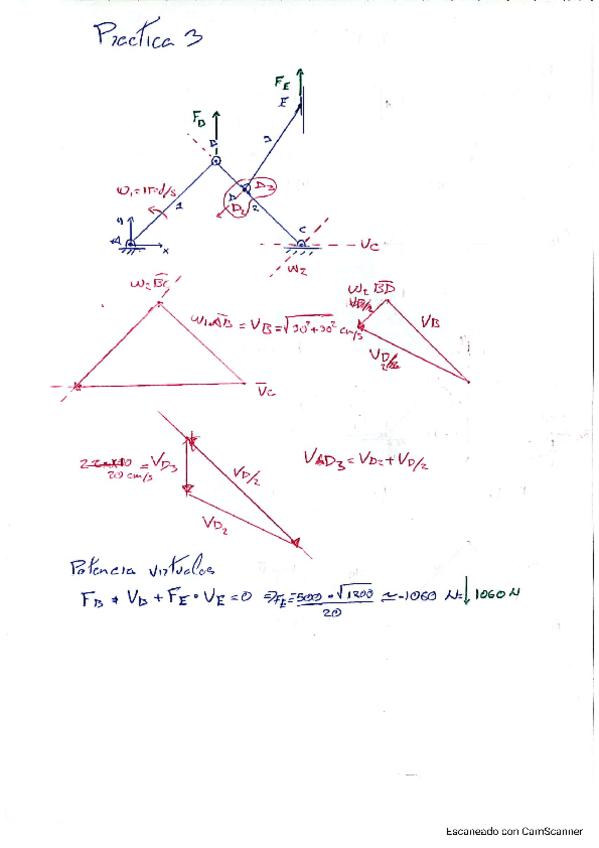 Practica 3
F_E
E
F_B
B
3
ω₁=1rad/s
1
D
D₃
D₂
2
y
A
x
C
V_C
ω₂
ω₂ B̅C̅
ω₁A̅B̅ = V_B = √30²+30² cm/s
V̅_C
ω₂ B̅D̅
V_D/2
V_B
20 cm/s = V_D₃
V_D/2
V_D₂
V_D₃ = V_D₂ + V_D/2
Potencia virtuales
F_B * V_B + F_E · V_E = 0 ⇒ F_E = 500 · √1800 / 20 ≃ -1060 N = ↓ 1060 N
Escaneado con CamScanner